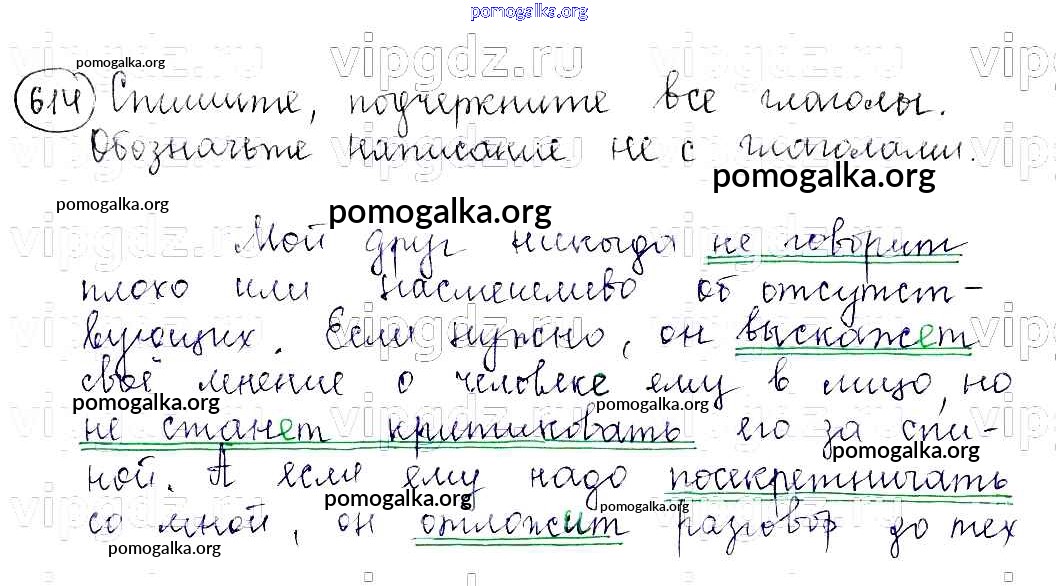 pomogalka.org
vipgdz.ru vipgdz.ru vipgdz.ru vipg
pomogalka.org
614 Спишите, подчеркните все глаголы.
Обозначьте написание не с глаголами.
pomogalka.org
pomogalka.org pomogalka.org
Мой друг никогда не говорит
плохо или насмешливо об отсутст-
вующих. Если нужно, он выскажет
своё мнение о человеке ему в лицо, но
pomogalka.org pomogalka.org
не станет критиковать его за спи-
pomogalka.org
ной. А если ему надо посекретничать
pomogalka.org pomogalka.org
со мной, он отложит разговор до тех
pomogalka.org